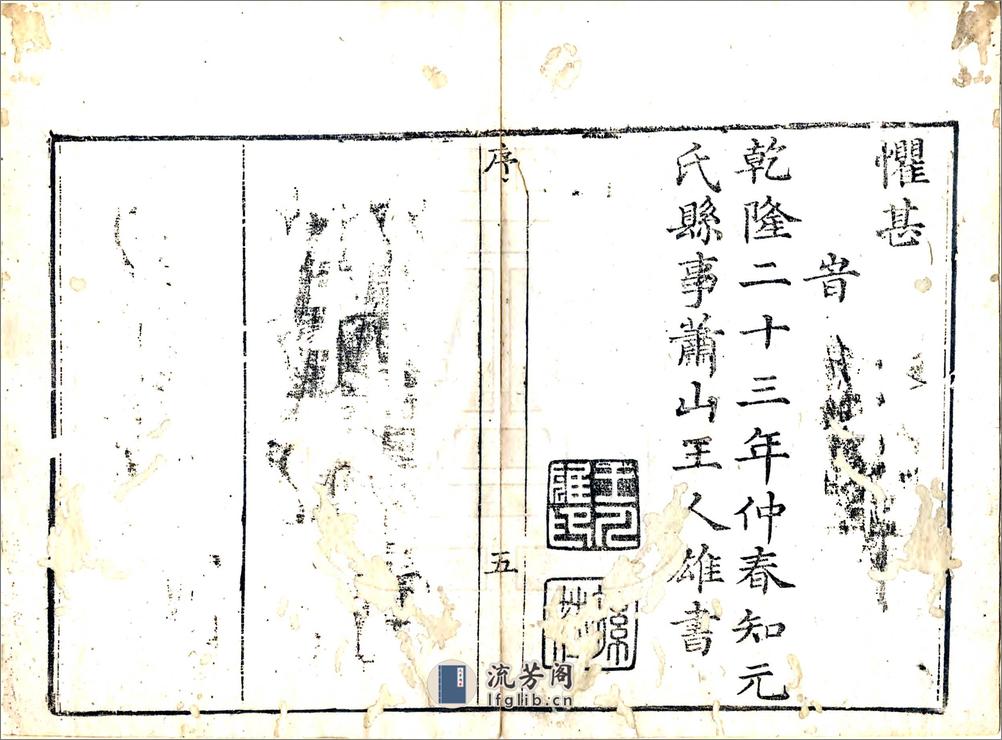 懼甚
旹
乾隆二十三年仲春知元
氏縣事蕭山王人雄書
序
五
流芳阁
lfglib.cn